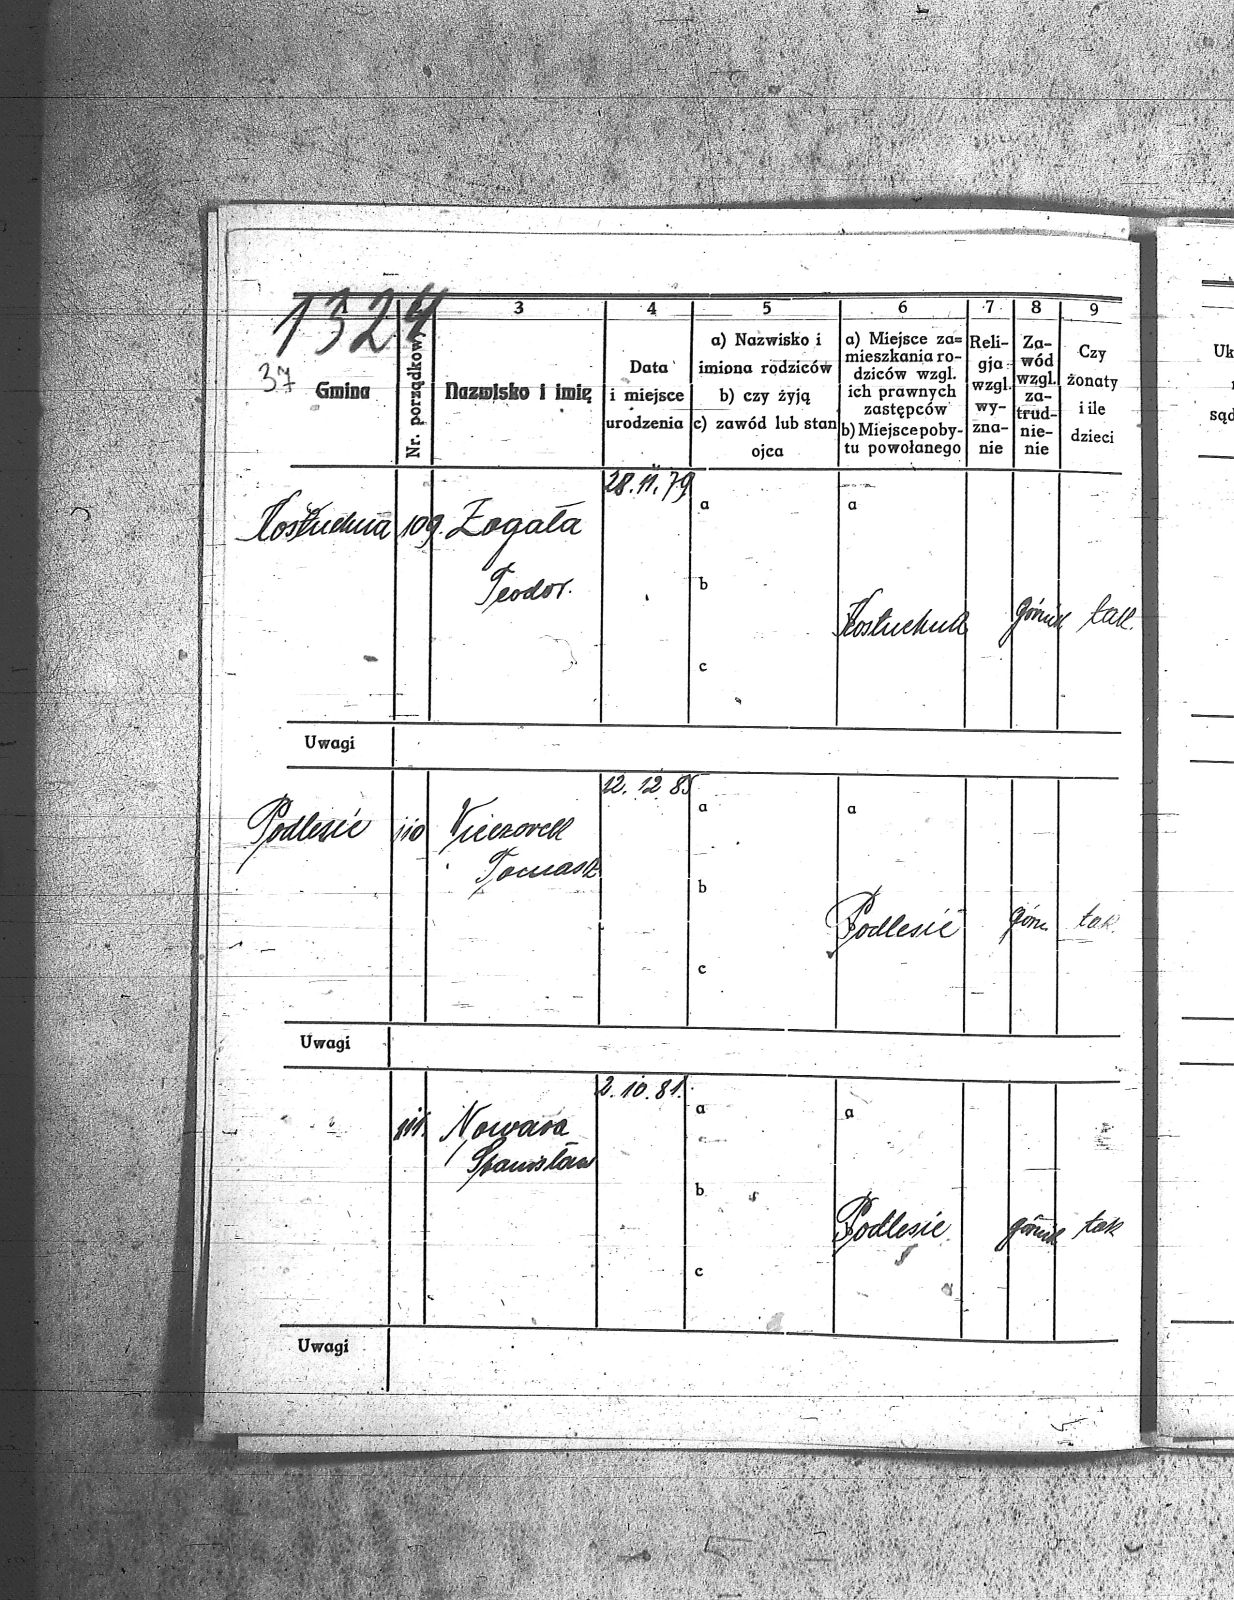 1324
37
Gmina
Nr. porządkowy
3
Nazwisko i imię
4
Data
i miejsce
urodzenia
5
a) Nazwisko i
imiona rodziców
b) czy żyją
c) zawód lub stan
ojca
6
a) Miejsce za=
mieszkania ro-
dziców wzgl.
ich prawnych
zastępców
b) Miejsce poby-
tu powołanego
7
Reli-
gja
wzgl.
wy-
zna-
nie
8
Za-
wód
wzgl.
za-
trud-
nie-
nie
9
Czy
żonaty
i ile
dzieci
Uk
sąd
Kostuchna 109. Zogała
Teodor.
28.11.79
a
b
c
a
Kostuchna
górnik
tak.
Uwagi
Podlesie 110
Tomasz
12. 12 85
a
b
c
a
Podlesie
górn.
tak.
Uwagi
111. Nowara
Stanisław
2.10.81.
a
b
c
a
Podlesie
górnik
tak
Uwagi